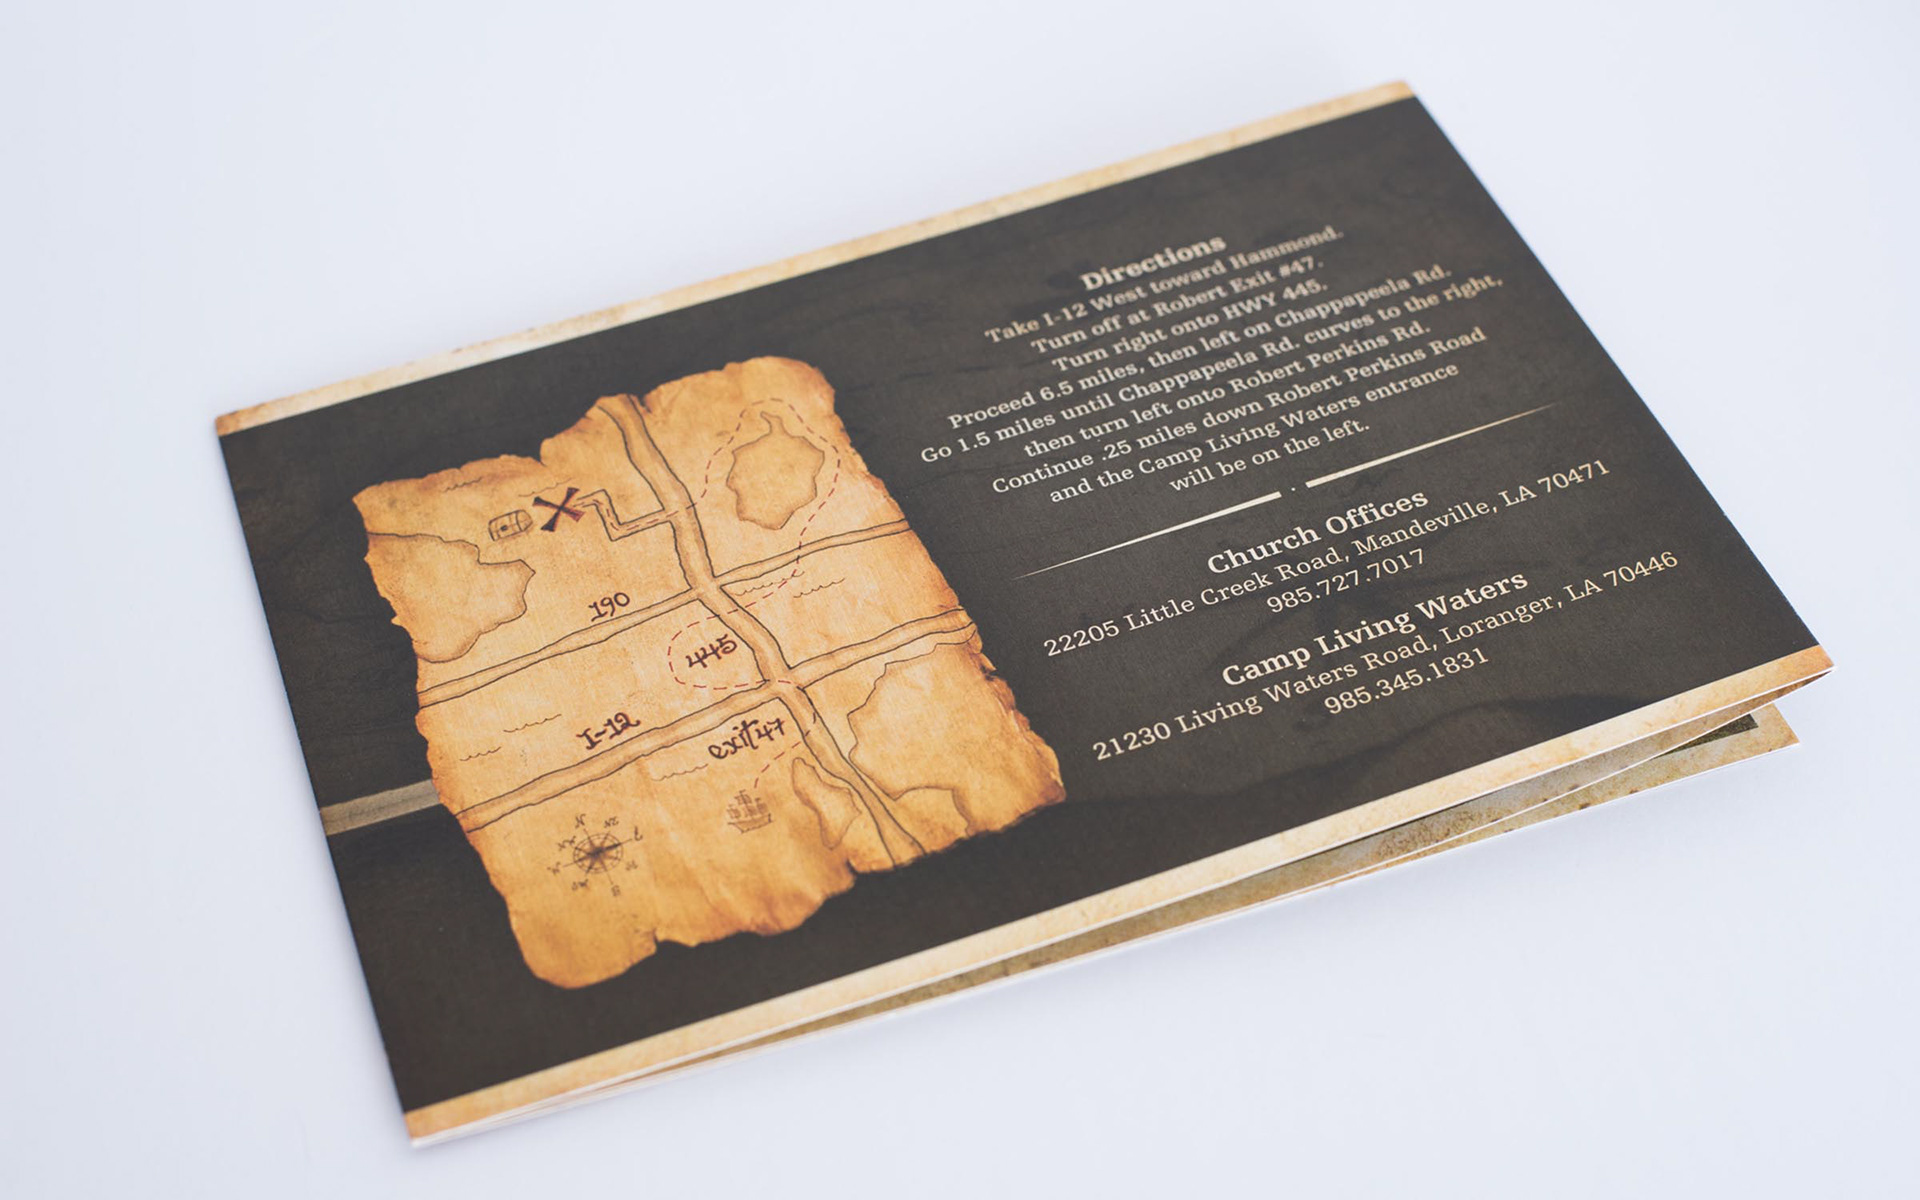 Directions
Take I-12 West toward Hammond.
Turn off at Robert Exit #47.
Turn right onto HWY 445.
Proceed 6.5 miles, then left on Chappapeela Rd.
Go 1.5 miles until Chappapeela Rd. curves to the right,
then turn left onto Robert Perkins Rd.
Continue .25 miles down Robert Perkins Road
and the Camp Living Waters entrance
will be on the left.
Church Offices
22205 Little Creek Road, Mandeville, LA 70471
985.727.7017
Camp Living Waters
21230 Living Waters Road, Loranger, LA 70446
985.345.1831
190
445
I-12
exit 47
N
S